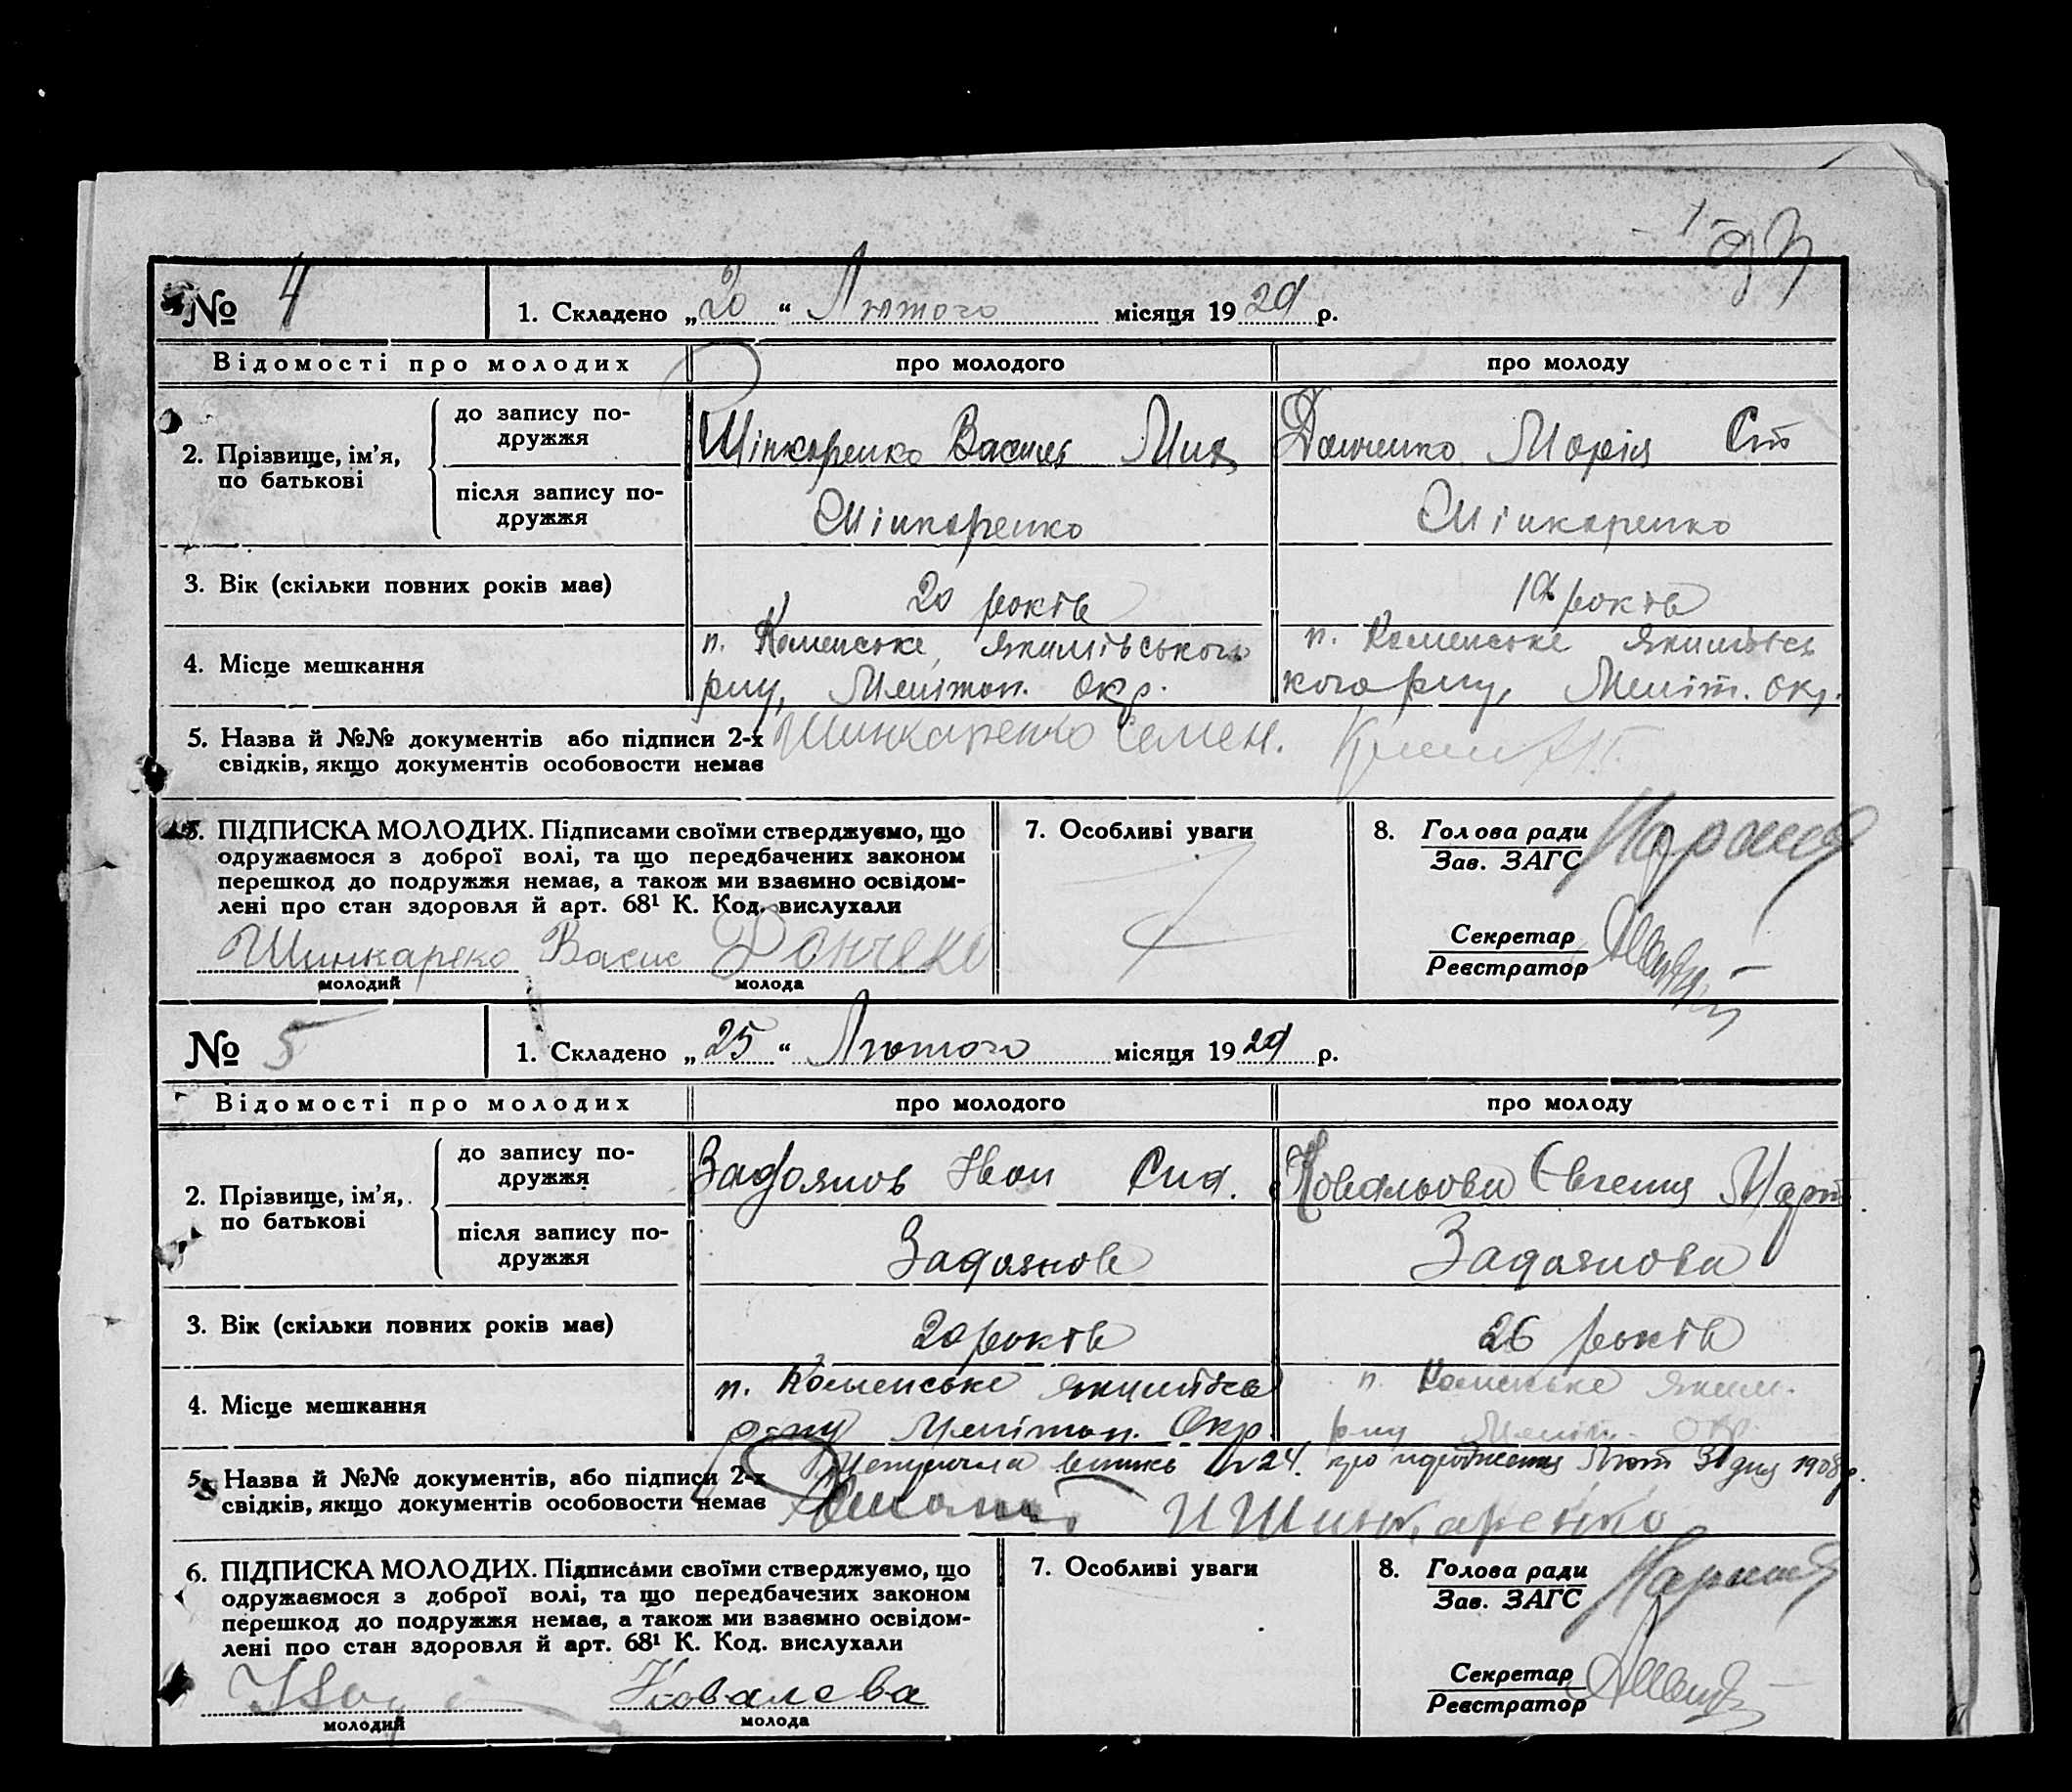 № 4
1. Складено „20“ Лютого місяця 1929 р.
Відомості про молодих
про молодого
про молоду
2. Прізвище, ім’я, по батькові
до запису подружжя
Шінкаренко Василь Мих
Данченко Марія Ст
після запису подружжя
Шінкаренко
Шінкаренко
3. Вік (скільки повних років має)
20 років
19 років
4. Місце мешкання
п. Каменське, Якимівського
рну, Мелітоп. Окр.
п. Каменське Якимівсь
кого рну, Меліт. Окр.
5. Назва й №№ документів або підписи 2-х
свідків, якщо документів особовости немає
Шинкаренко Семен.
6. ПІДПИСКА МОЛОДИХ. Підписами своїми стверджуємо, що
одружаємося з доброї волі, та що передбачених законом
перешкод до подружжя немає, а також ми взаємно освідом-
лені про стан здоровля й арт. 68¹ К. Код. вислухали
Шинкареко Васис Данчеко
молодий
молода
7. Особливі уваги
8. Голова ради
Зав. ЗАГС
Секретар
Реєстратор
№ 5
1. Складено „25“ Лютого місяця 1929 р.
Відомості про молодих
про молодого
про молоду
2. Прізвище, ім’я, по батькові
до запису подружжя
Задоянов Іван Сид.
Ковальова Євгенія Март
після запису подружжя
Задоянов
Задоянова
3. Вік (скільки повних років має)
20 років
26 років
4. Місце мешкання
п. Каменське Якимівсь
рну Мелітоп. Окр
п. Каменське Яким.
рну Меліт. Окр.
5. Назва й №№ документів, або підписи 2-х
свідків, якщо документів особовости немає
№ 24. про народження Лют 3 дня 1908 р.
И Шинкаренко
6. ПІДПИСКА МОЛОДИХ. Підписами своїми стверджуємо, що
одружаємося з доброї волі, та що передбачених законом
перешкод до подружжя немає, а також ми взаємно освідом-
лені про стан здоровля й арт. 68¹ К. Код. вислухали
Ковалева
молодий
молода
7. Особливі уваги
8. Голова ради
Зав. ЗАГС
Секретар
Реєстратор